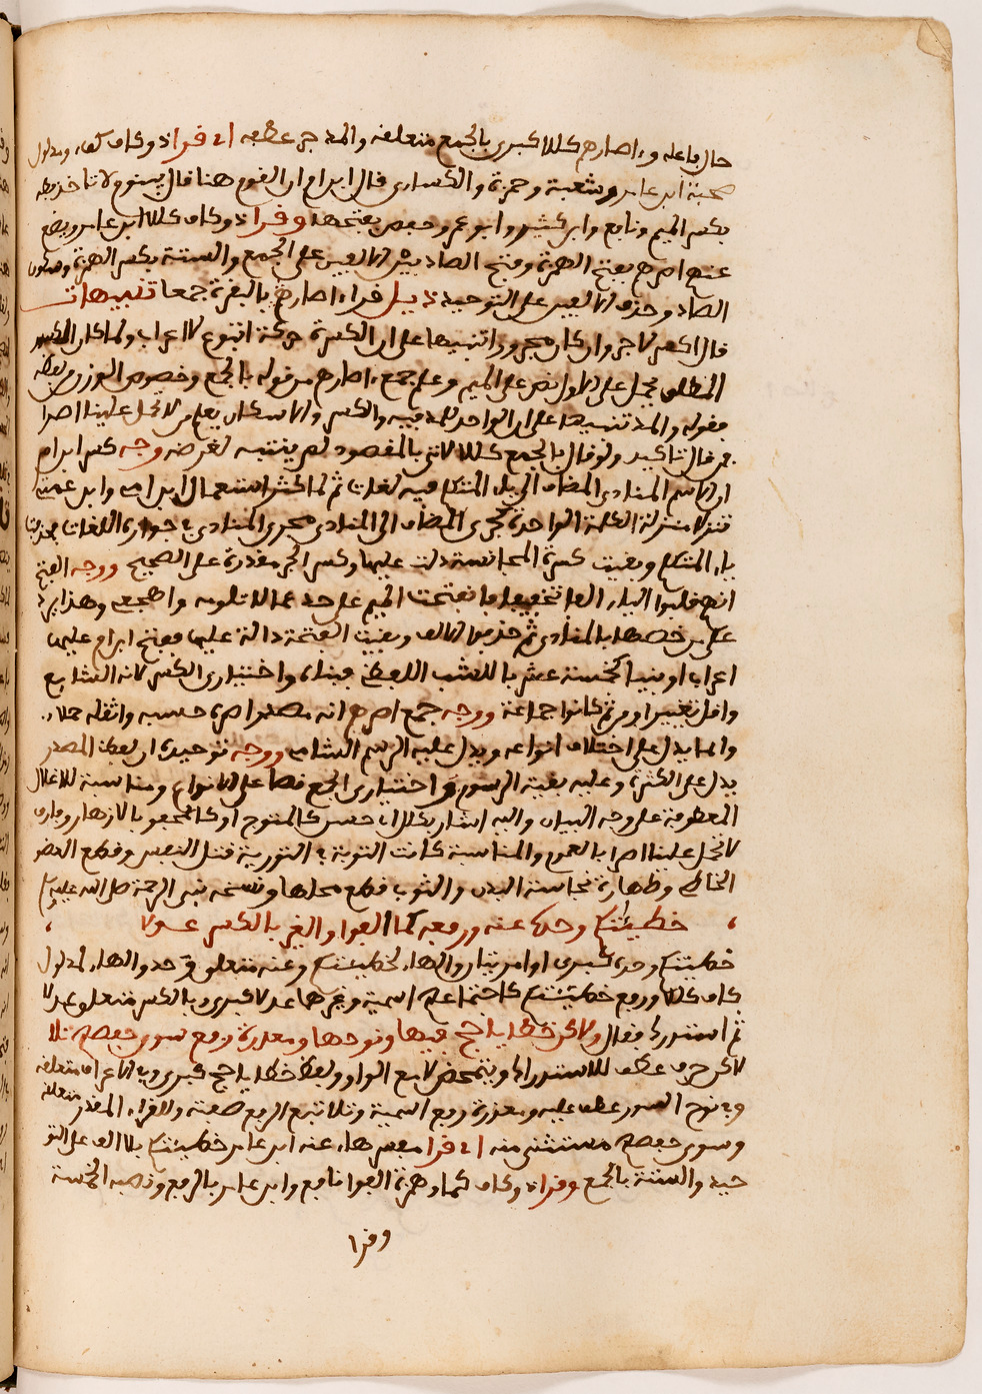 حال فاعله وءاصارهم كللا كبرى بالجمع متعلقه والمد جر عطفه اي قرا ذو كاف كفء ومدلول
صحبة ابن عامر وشعبة وحمزة والكساري قال ابن ام ان القوم هنا قال يبنؤم لا تاخذ بطه
بكسر الميم ونافع وابن كثير وابو عمرو وحفص بفتحها وقرا ذو كاف كللا ابن عامر ويضع
عنهم اصرهم بفتح الهمزة وفتح الصاد بين الالفين على الجمع والستة بكسر الهمزة وسكون
الصاد وحذف الالفين على التوحيد ذيل قراء اصارهم بالبقرة جمعا تنبيهات
قال اكسر لا جر وان كان مجرورا تنبيها على ان الكسرة حركة اتبوع لا اعراب ولما كان الكسر
المطلق يحمل على الاول نص على الميم وعلم جمع ءاصارهم من قوله بالجمع وخصوص الوزن من لفظه
بقوله والمد تنبيها على ان الواحد للمد فيه والكسر والاسكان يعلم من لا تحمل علينا اصرا
من قال تاكيد ولو قال بالجمع كللا لاتى بالمقصود لم ينتبه لغرضه وجه كسر ابن ام
ان الاسم المنادى المضاف الى ياء المتكلم فيه لغات ثم لما كثر استعمال ابن ام وابن عم
تنزلا منزلة الكلمة الواحدة فجرى المضاف الى المنادى مجرى المنادى في جواز اللغات فحذفت
ياء المتكلم وبقيت كسرة المجانسة دلت عليها وكسر الجر مقدرة على الصحيح ووجه الفتح
انهم قلبوا الياء الفا تخفيفا فانفتحت الميم على حد يا اسفى وهذا يرد
على من خصها بالمنادى ثم حذفوا الالف وبقيت الفتحة دالة عليها ففتح ابن ام عليهما
اعراب او بنيا كخمسة عشر بالشبه اللفظي فبناء واختياري الكسر لانه الشايع
واقل تغييرا ومن ثم كانوا جماعة ووجه جمع اصرهم انه مصدر اصره حبسه واثقله حملا
والما يدل على اختلاف انواعه ويدل عليه الرسم الشامي ووجه توحيده ان لفظ المصدر
يدل على الكثرة وعليه بقية الرسوم واختياري الجمع نصا على الانواع ومناسبة للاغلال
المعطوفة على وجه البيان واليه اشار بكللا
لا تحمل علينا اصرا بالعموم والمناسبة كانت التوبة في التورية قتل النفس وقطع العضو
الخاطئ وطهارة نجاسة البدن والثوب قطع محلها ونسخه نبي الرحمة صلى الله عليه وسلم
خطيئتكم وحده عنه ورفعه كما الفوا والغير بالكسر عدلا
خطيئتكم وحده كبرى او امر يتبان والهاء لخطيئتكم وعنه متعلق وحد والهاء لمدلول
كاف كللا ورفع خطيئتكم كاختها علم اسمية وغيرهما عدلا كبرى وبالكسر متعلق عدلا
ثم استدرك فقال ولاكن خطايا حج فيها ونوحها ومعذرة رفع سوى حفصهم تلا
لاكن حرف عطف للاستدراك ويتمحض لا مع الواو ولفظ خطايا حج كبرى وفي الاعراف متعلقه
وفي نوح السور عطف عليه ومعذرة رفع اسمية وتلا تبع الرفع صفته وللقراء المقدر متعلقه
وسوى حفصهم مستثنى منه اي قرا مفسر هاء عنه ابن عامر خطيئتكم بلا الف على التو
حيد والستة بالجمع وقرا ذو كاف كما وهمزة الفوا نافع وابن عامر بالرفع ونصبه الخمسة
وقرا